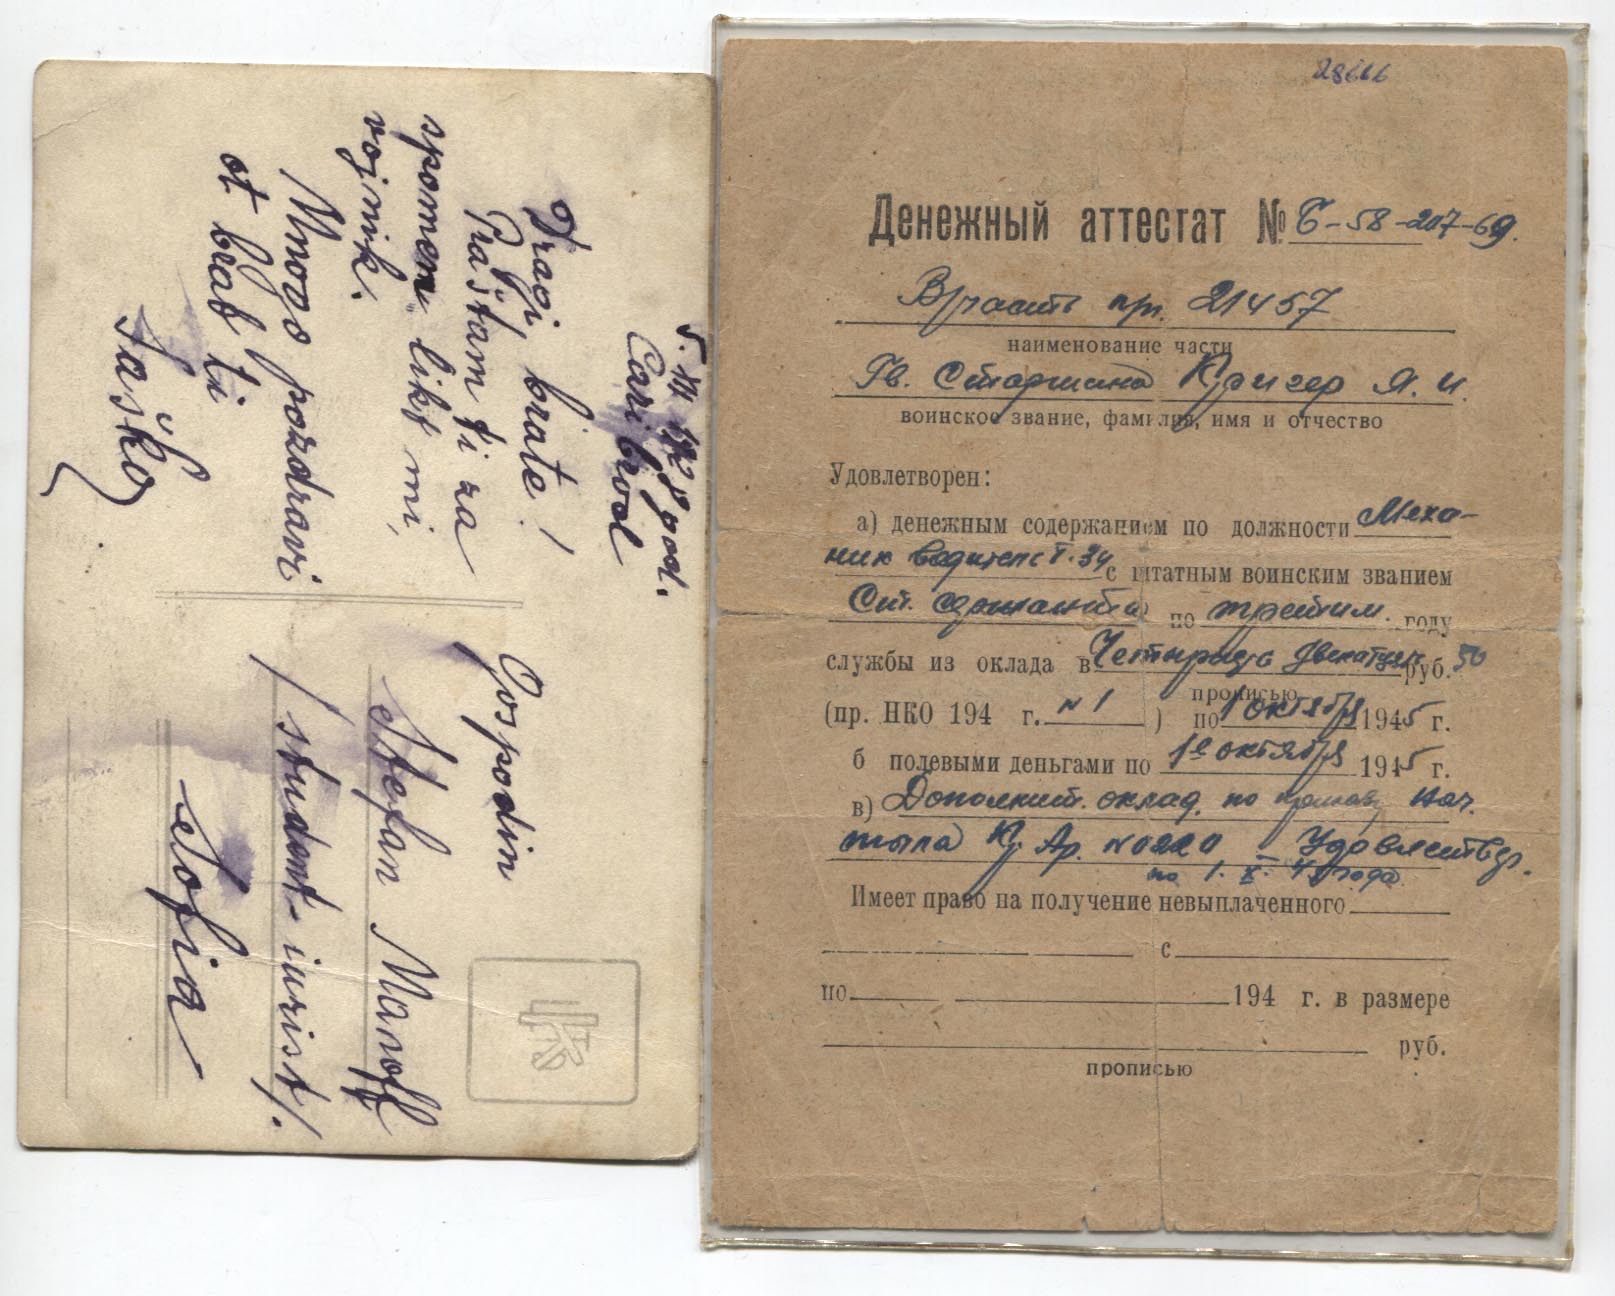 5. VII 1928 god.
Caribrod
Dragi brate!
Praštam ti za
spomen likt mi,
vojnik.
Mnogo pozdravi
ot brat ti
Saško
Gospodin
Stefan Manoff
/ student-iurist /.
Sofia
28666
Денежный аттестат № Б-58-207-69.
В/часть пп. 21457
наименование части
Гв. Старшина Кригер Я. И.
воинское звание, фамилия, имя и отчество
Удовлетворен:
а) денежным содержанием по должности Меха-
ник водитель Т-34 с штатным воинским званием
Ст. сержанта по третьим. году
службы из оклада в Четыреста руб. 50
прописью
(пр. НКО 194 г. №1 ) по 1 октября 1945 г.
б полевыми деньгами по 1е октября 1945 г.
в) Дополнит. оклад. по приказу Нач.
тыла Кр. Ар. №0220 Удовлетвор.
по 1. X. 45 года
Имеет право на получение невыплаченного
с
по 194 г. в размере
руб.
прописью